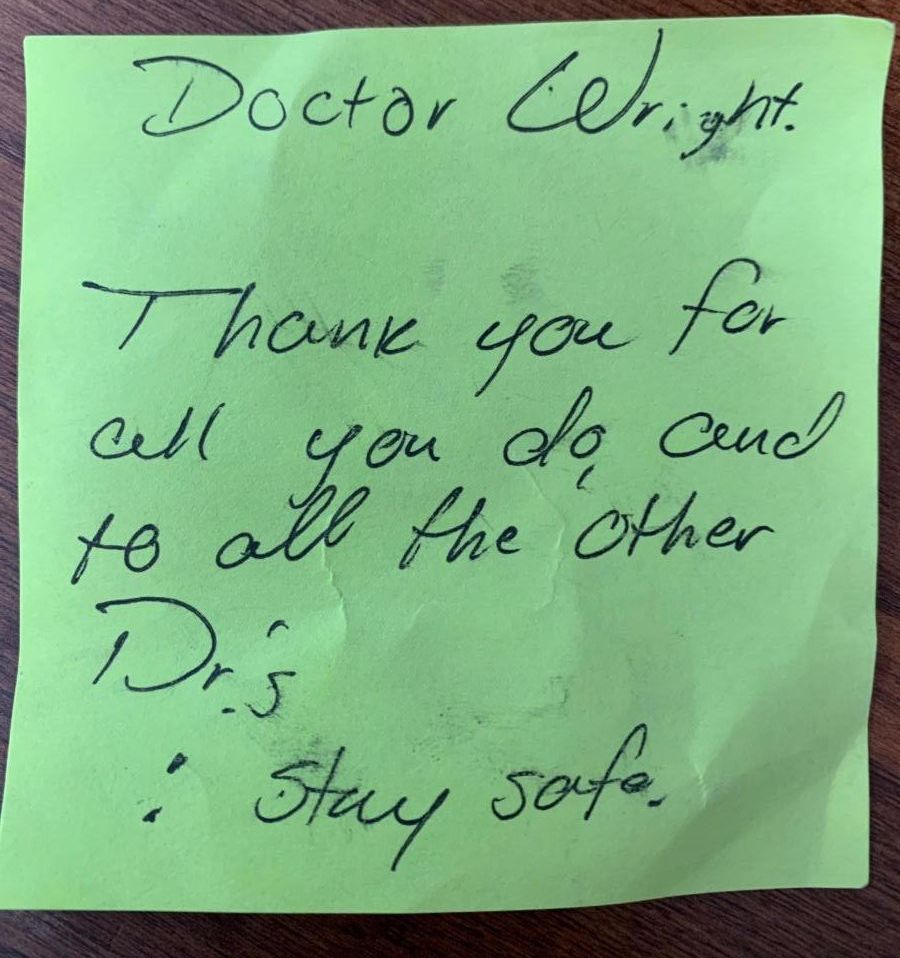 Doctor Wright.
Thank you for
all you do, and
to all the other
Dr.'s
: Stay safe.